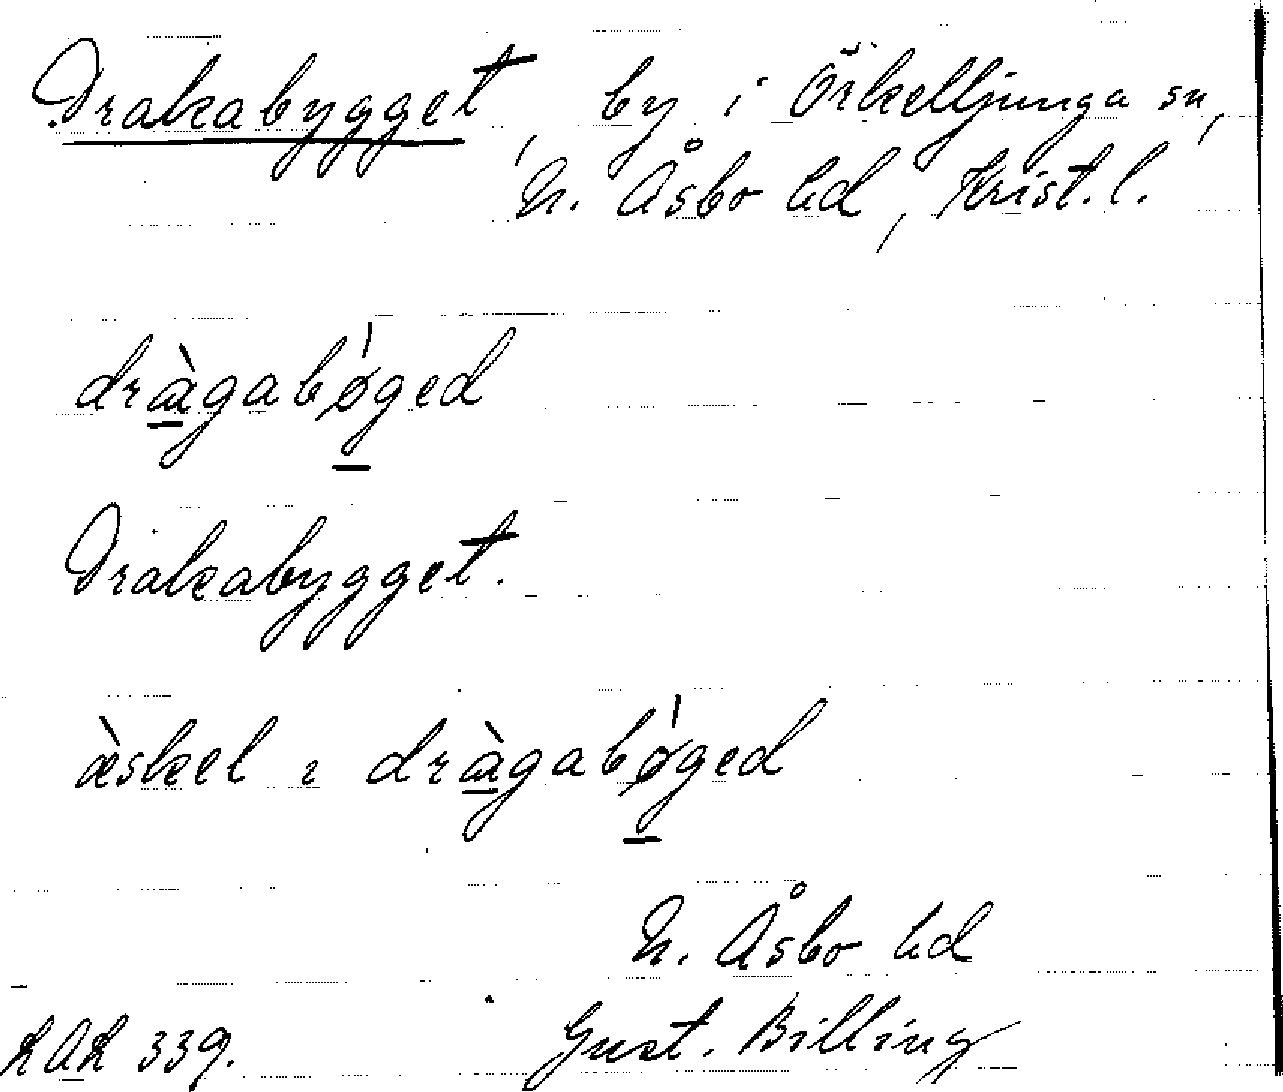 Drakabygget, by i Örkelljunga sn,
N. Åsbo hd, Krist. l.
dràgabǿged
Drakabygget.
æ̀skel i dràgabǿged
N. Åsbo hd
LAL 339. Gust. Billing